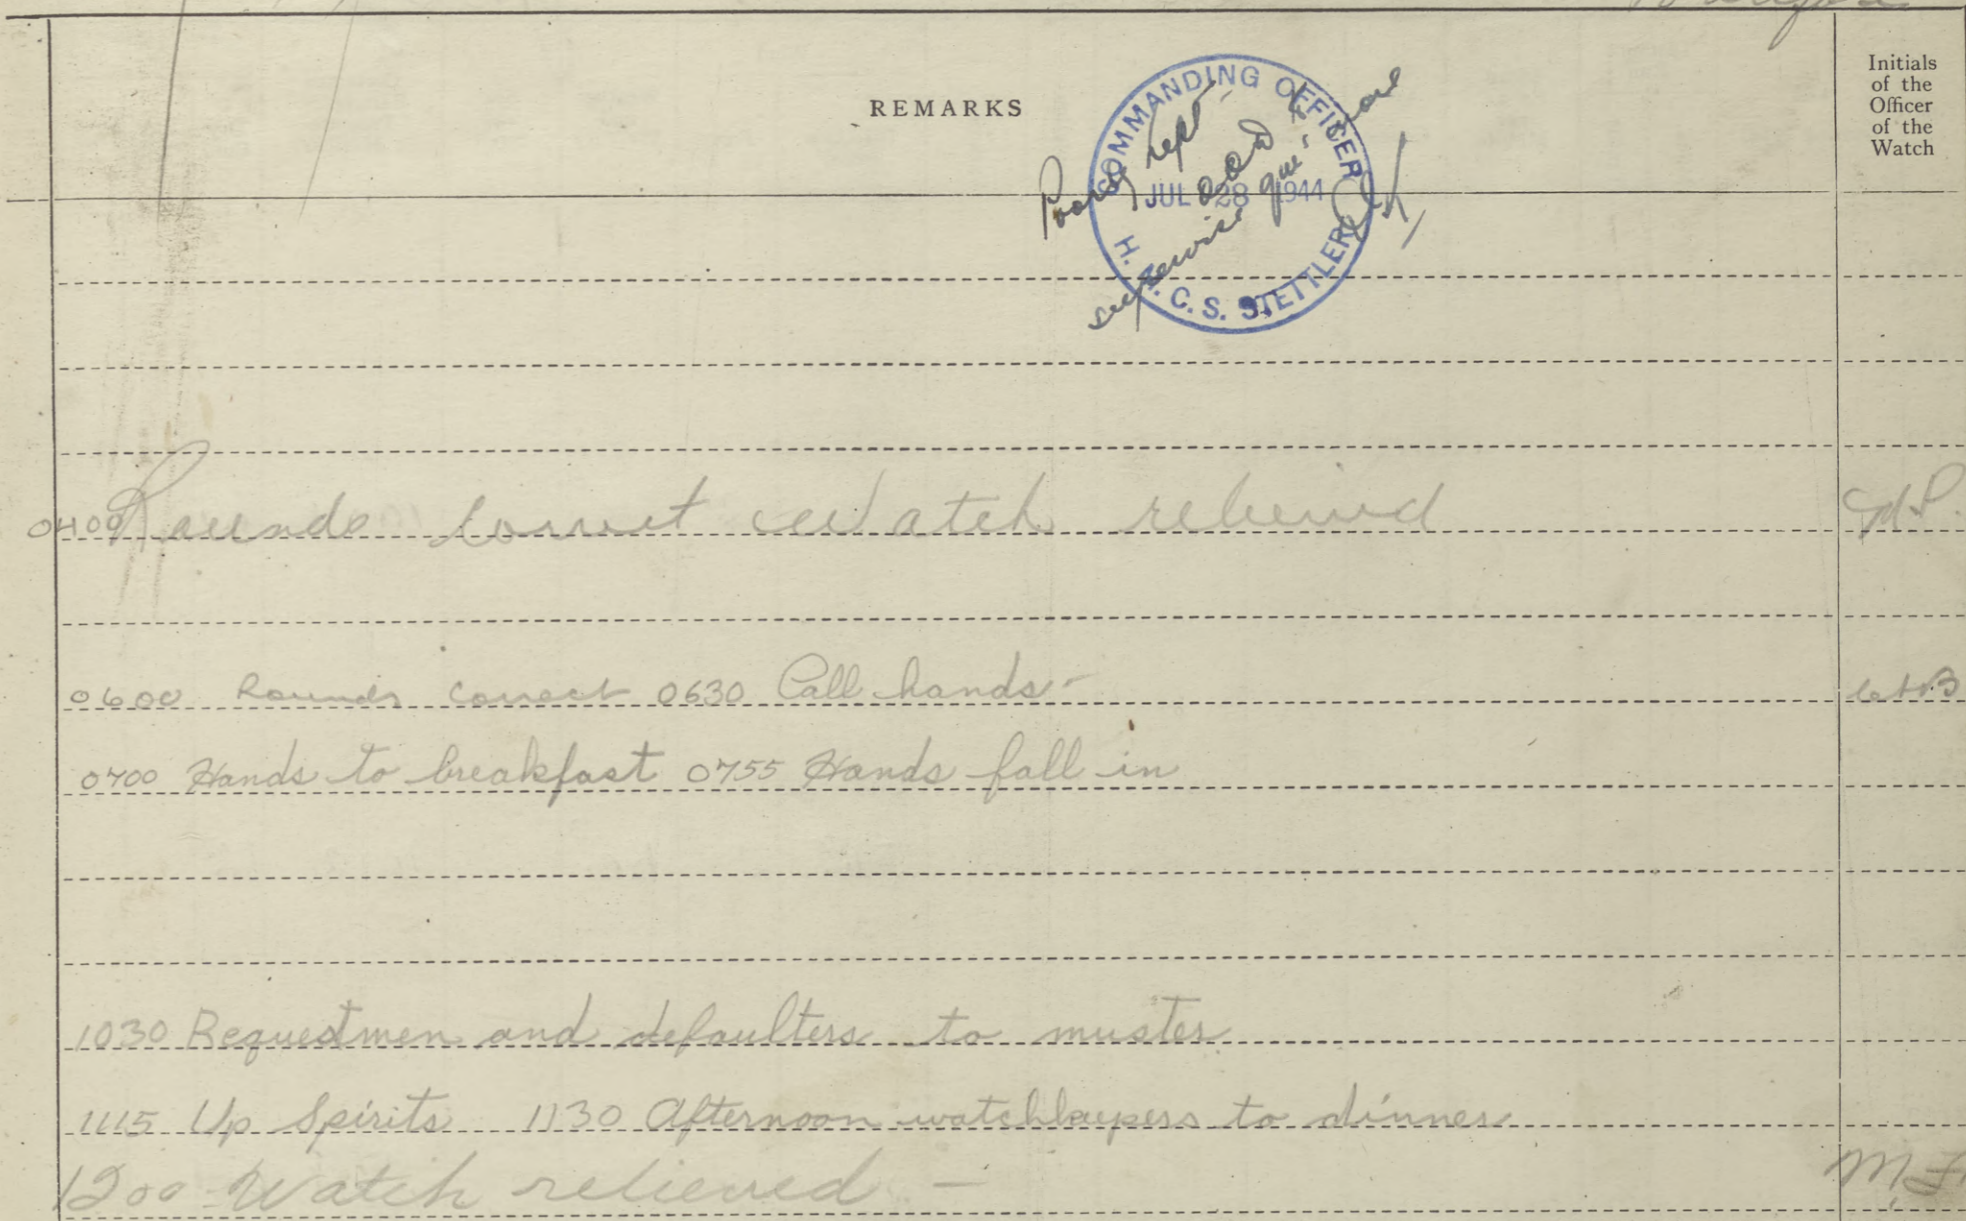 REMARKS
Initials
of the
Officer
of the
Watch
COMMANDING OFFICER
JUL 28 1944
H. C. S. STETTLER
Poorly kept -
OOD to
supervise
0400 Rounds correct Watch relieved
0600 Rounds correct 0630 Call hands -
0700 Hands to breakfast 0755 Hands fall in
1030 Requestmen and defaulters to muster
1115 Up Spirits 1130 Afternoon watchkeepers to dinner
1200 - Watch relieved - M.F.